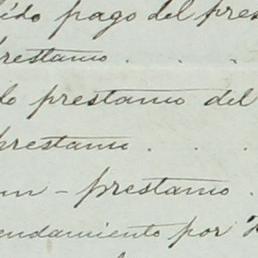 lido pago del pres
restamo . . .
lo prestamo del
prestamo . . .
um - prestamo .
endamiento por